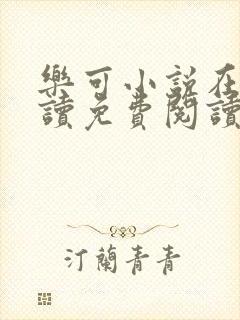 樂可小說在
讀免費閱讀
汀蘭青青